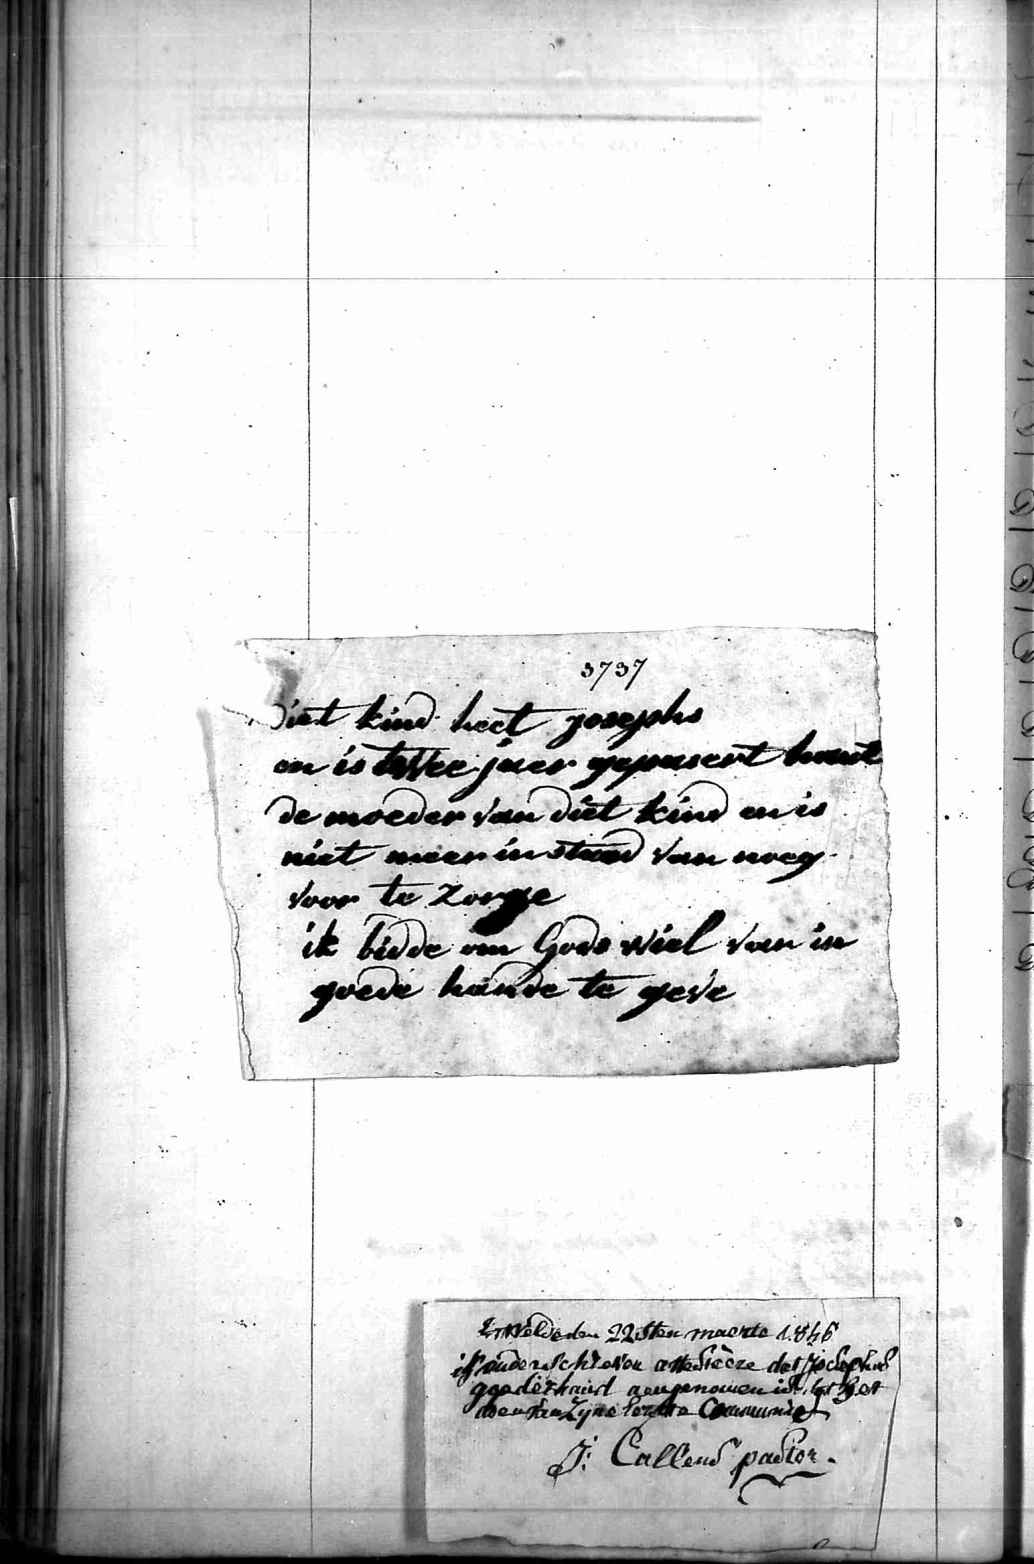 3737
Diet kind heet josephs
en is twee jaer gepaseert
de moeder van diet kind en is
niet meer in staad van noeg
voor te zorge
ik bidde om Gods wiel van in
goede hande te geve
Welde den 22sten maerte 1846
ik onderschreven atteste dat Josephus
aengenomen is tot het
doen van Zijne Eerste Communie
J: Callens pastor.